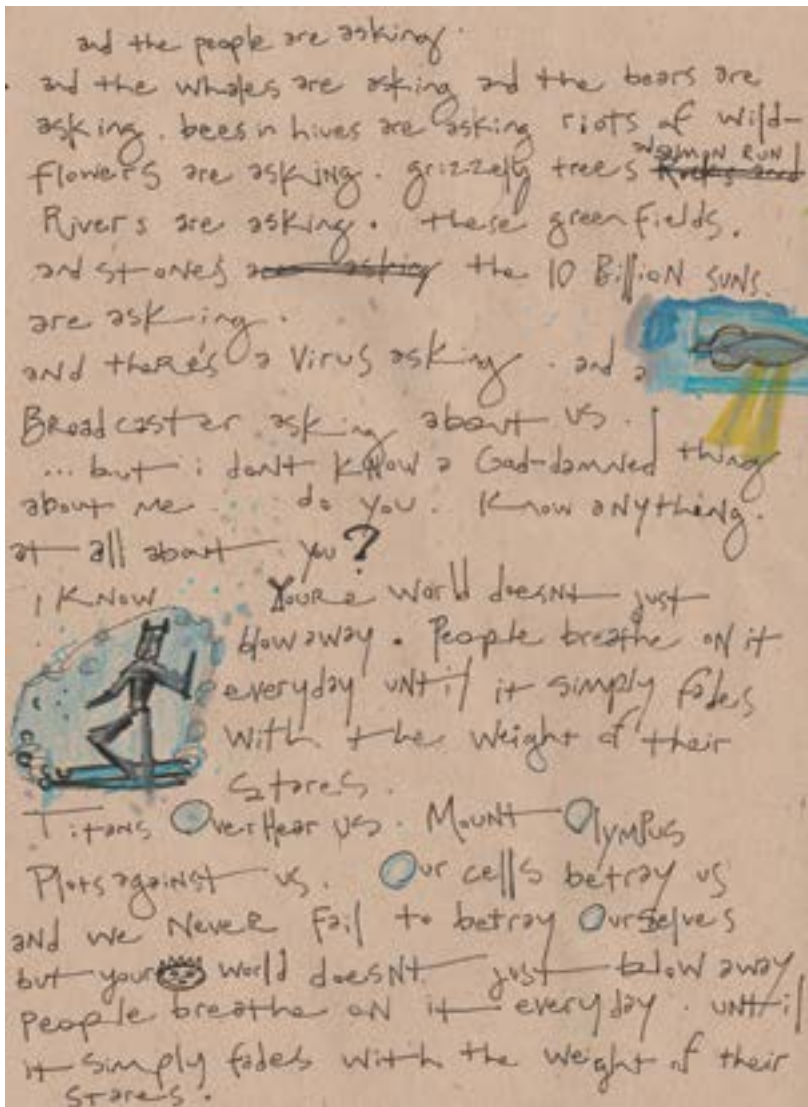 and the people are asking.
and the whales are asking and the bears are
asking. bees in hives are asking riots of wild-
flowers are asking. grizzelly trees
SALMON RUN
Rivers are asking. these green fields.
and stones the 10 Billion suns.
are asking.
and there's a virus asking. and a
Broadcaster asking about us.
... but i dont know a God-damned thing
about me. do you. Know anything.
at all about you?
i know Youre world doesnt just
blow away. People breathe on it
everyday until it simply fades
with the weight of their
stares.
Titans OverHear us. Mount Olympus
Plots against us. Our cells betray us
and we Never fail to betray Ourselves
but your world doesnt just blow away
people breathe on it everyday. until
it simply fades with the weight of their
stares.